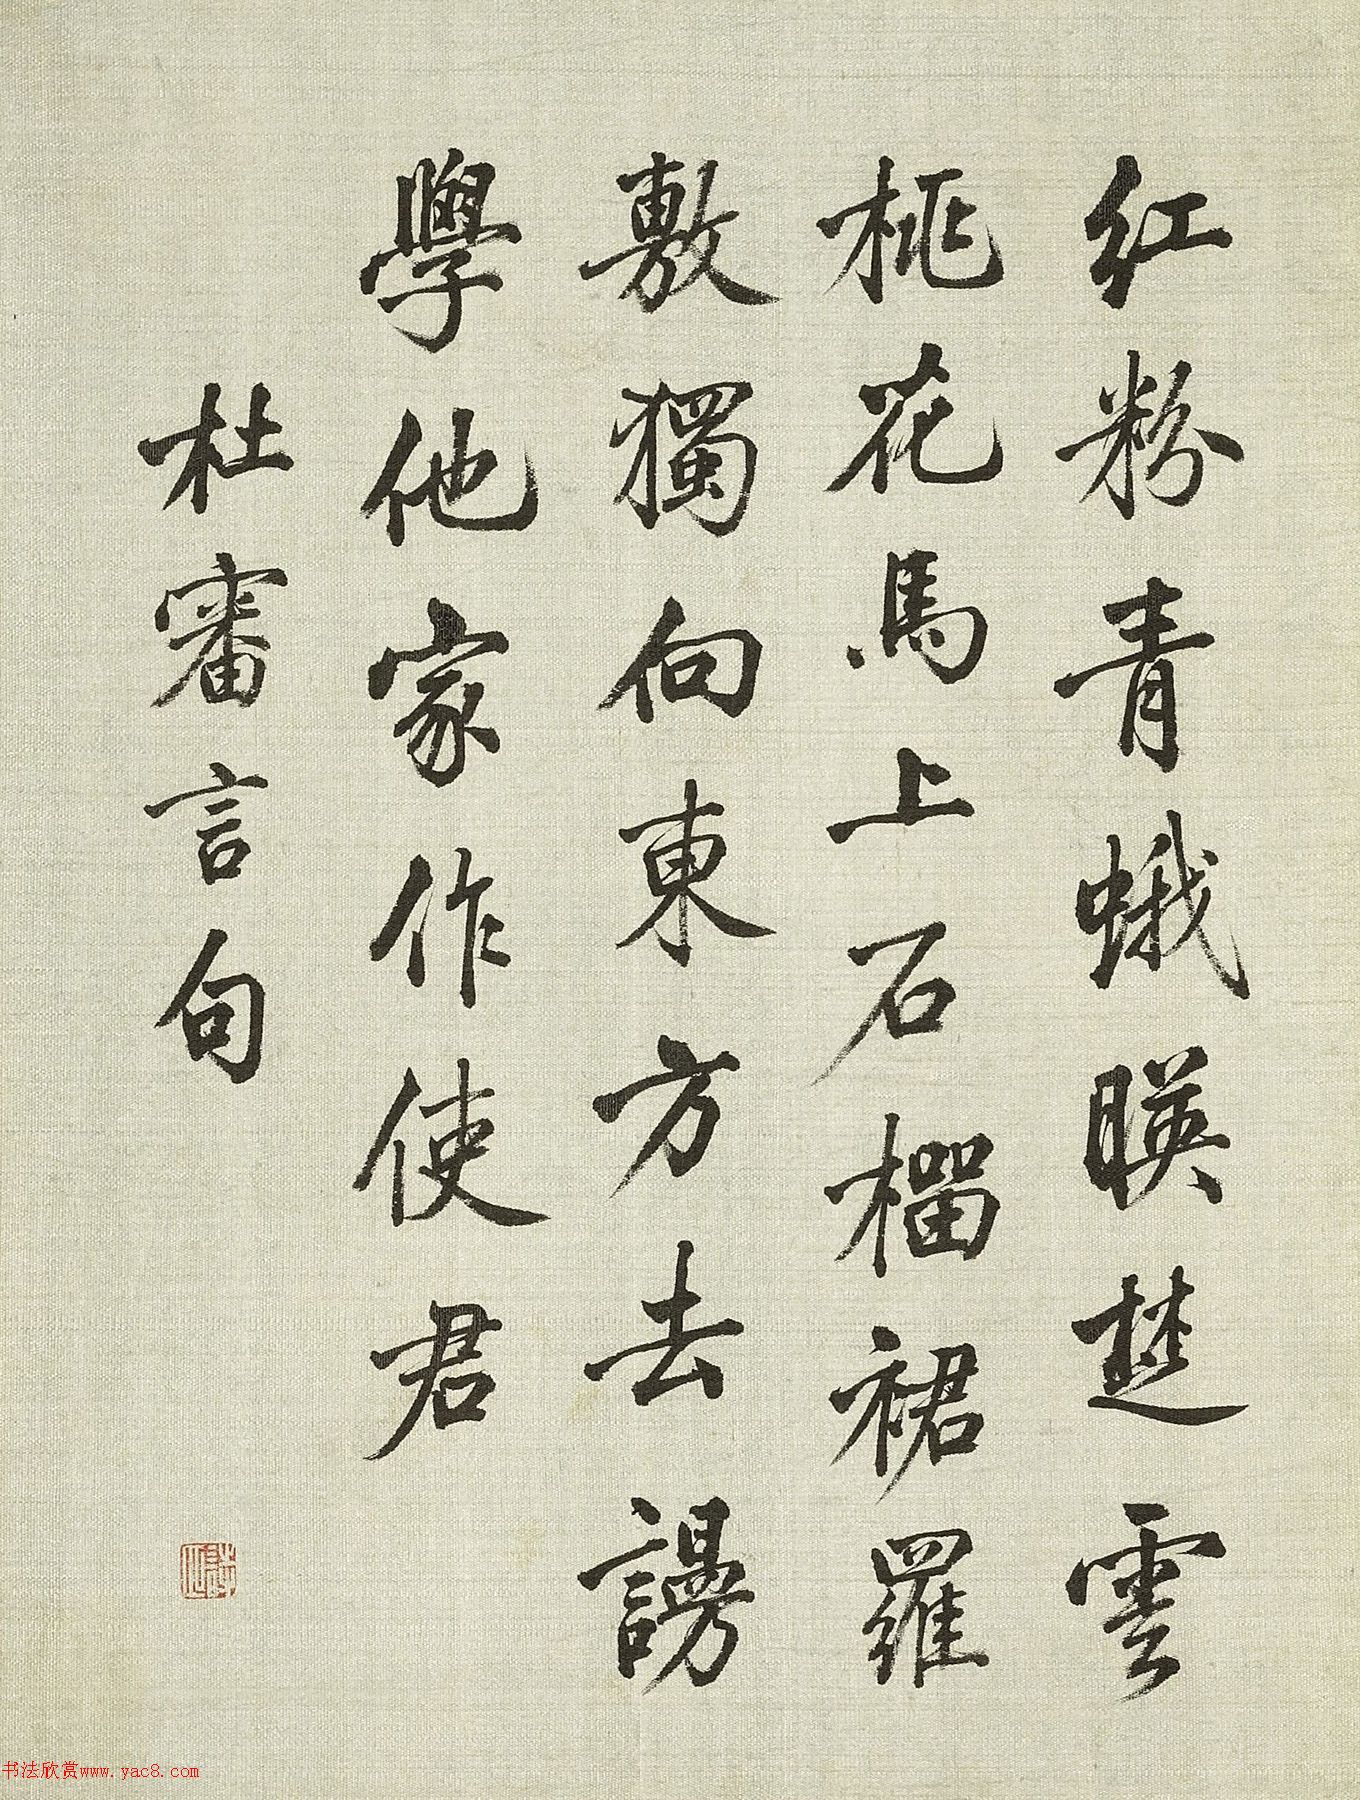 红粉青蛾暎楚雲
桃花馬上石榴裙羅
敷獨向東方去謾
學他家作使君
杜審言句
书法欣赏www.yac8.com